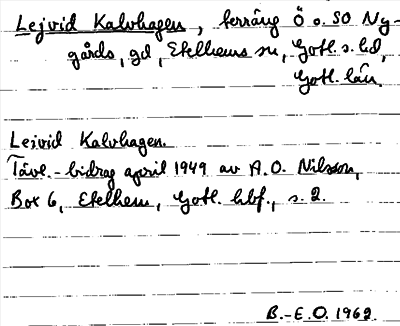 Lejvid Kalvhagen, terräng Ö o. SO Ny-
gårds, gd, Etelhems sn, Gotl. s. hd,
Gotl. län.
Lejvid Kalvhagen.
Tävl.-bidrag april 1949 av A.O. Nilsson,
Box 6, Etelhem, Gotl. hbf., s. 2.
B.-E.O. 1962